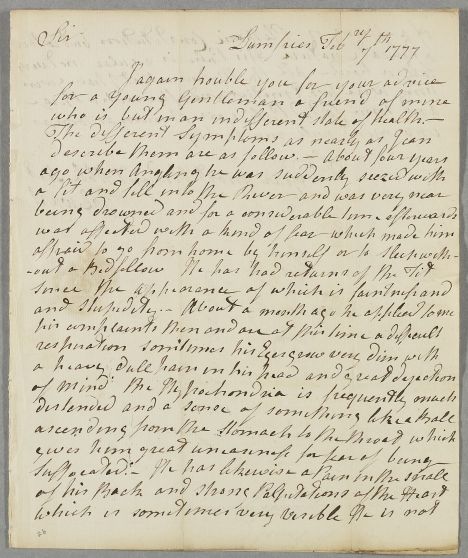 Sir
Dumfries Febry 7th 1777
I again trouble you for your advice
for a Young Gentleman a friend of mine
who is but in an indifferent state of health.—
The different Symptoms as nearly as I can
describe them are as follow.— About four years
ago when Angling he was suddenly seized with
a Fit and fell into the River and was very near
being drowned and for a considerable time afterwards
was affected with a kind of fear which made him
afraid to go from home by himself or to sleep with-
-out a Bedfellow He has had returns of the Fit
since the appearance of which is faintness and
and stupidity.— About a month ago he applied to me
his complaints then and are at this time a difficult
respiration sometimes his Eyes grow very dim with
a heavy dull pain in his head and great dejection
of mind the Hypochondria is frequently much
distended and a sense of something like a Ball
ascending from the Stomach to the throat which
gives him great uneasiness for fear of being
suffocated.— He has likewise a Pain in the small
of his Back and strong Palpitations of the Heart
which is sometimes very visible He is not